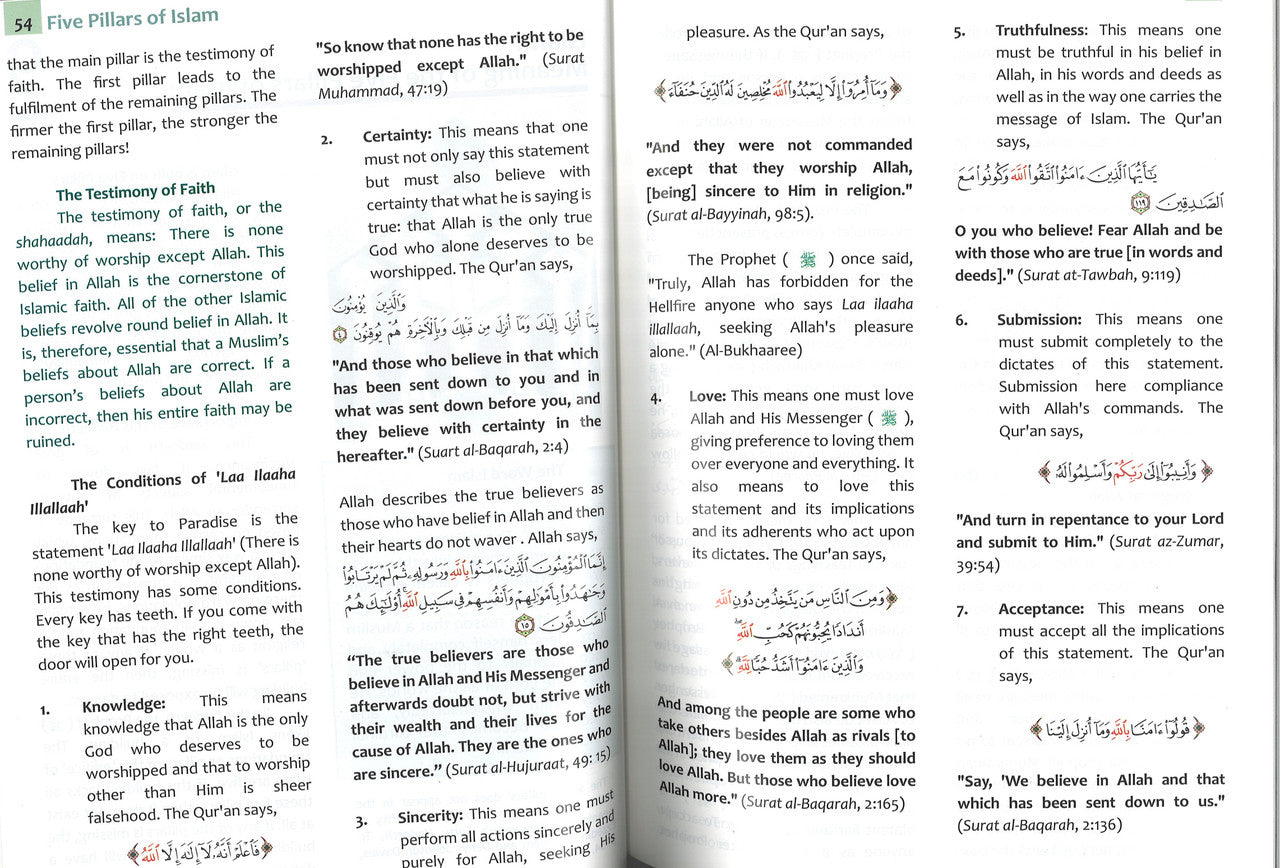 54 Five Pillars of Islam
that the main pillar is the testimony of
faith. The first pillar leads to the
fulfilment of the remaining pillars. The
firmer the first pillar, the stronger the
remaining pillars!
The Testimony of Faith
The testimony of faith, or the
shahaadah, means: There is none
worthy of worship except Allah. This
belief in Allah is the cornerstone of
Islamic faith. All of the other Islamic
beliefs revolve round belief in Allah. It
is, therefore, essential that a Muslim's
beliefs about Allah are correct. If a
person's beliefs about Allah are
incorrect, then his entire faith may be
ruined.
The Conditions of 'Laa Ilaaha
Illallaah'
The key to Paradise is the
statement 'Laa Ilaaha Illallaah' (There is
none worthy of worship except Allah).
This testimony has some conditions.
Every key has teeth. If you come with
the key that has the right teeth, the
door will open for you.
1. Knowledge: This means
knowledge that Allah is the only
God who deserves to be
worshipped and that to worship
other than Him is sheer
falsehood. The Qur'an says,
﴿فَاعْلَمْ أَنَّهُ لَا إِلَهَ إِلَّا اللَّهُ﴾
"So know that none has the right to be
worshipped except Allah." (Surat
Muhammad, 47:19)
2. Certainty: This means that one
must not only say this statement
but must also believe with
certainty that what he is saying is
true: that Allah is the only true
God who alone deserves to be
worshipped. The Qur'an says,
وَالَّذِينَ يُؤْمِنُونَ
بِمَا أُنزِلَ إِلَيْكَ وَمَا أُنزِلَ مِن قَبْلِكَ وَبِالْآخِرَةِ هُمْ يُوقِنُونَ ٤
"And those who believe in that which
has been sent down to you and in
what was sent down before you, and
they believe with certainty in the
hereafter." (Suart al-Baqarah, 2:4)
Allah describes the true believers as
those who have belief in Allah and then
their hearts do not waver . Allah says,
إِنَّمَا الْمُؤْمِنُونَ الَّذِينَ ءَامَنُوا بِاللَّهِ وَرَسُولِهِ ثُمَّ لَمْ يَرْتَابُوا
وَجَاهَدُوا بِأَمْوَالِهِمْ وَأَنفُسِهِمْ فِي سَبِيلِ اللَّهِ أُوْلَئِكَ هُمُ
الصَّادِقُونَ ١٥
“The true believers are those who
believe in Allah and His Messenger and
afterwards doubt not, but strive with
their wealth and their lives for the
cause of Allah. They are the ones who
are sincere.” (Surat al-Hujuraat, 49: 15)
3. Sincerity: This means one must
perform all actions sincerely and
purely for Allah, seeking His
pleasure. As the Qur'an says,
﴿وَمَا أُمِرُوا إِلَّا لِيَعْبُدُوا اللَّهَ مُخْلِصِينَ لَهُ الدِّينَ حُنَفَاءَ﴾
"And they were not commanded
except that they worship Allah,
[being] sincere to Him in religion."
(Surat al-Bayyinah, 98:5).
The Prophet ( ﷺ ) once said,
"Truly, Allah has forbidden for the
Hellfire anyone who says Laa ilaaha
illallaah, seeking Allah's pleasure
alone." (Al-Bukhaaree)
4. Love: This means one must love
Allah and His Messenger ( ﷺ ),
giving preference to loving them
over everyone and everything. It
also means to love this
statement and its implications
and its adherents who act upon
its dictates. The Qur'an says,
﴿وَمِنَ النَّاسِ مَن يَتَّخِذُ مِن دُونِ اللَّهِ
أَندَادًا يُحِبُّونَهُمْ كَحُبِّ اللَّهِ
وَالَّذِينَ ءَامَنُوا أَشَدُّ حُبًّا لِّلَّهِ﴾
And among the people are some who
take others besides Allah as rivals [to
Allah]; they love them as they should
love Allah. But those who believe love
Allah more." (Surat al-Baqarah, 2:165)
5. Truthfulness: This means one
must be truthful in his belief in
Allah, in his words and deeds as
well as in the way one carries the
message of Islam. The Qur'an
says,
يَا أَيُّهَا الَّذِينَ ءَامَنُوا اتَّقُوا اللَّهَ وَكُونُوا مَعَ
الصَّادِقِينَ ١١٩
O you who believe! Fear Allah and be
with those who are true [in words and
deeds]." (Surat at-Tawbah, 9:119)
6. Submission: This means one
must submit completely to the
dictates of this statement.
Submission here compliance
with Allah's commands. The
Qur'an says,
﴿وَأَنِيبُوا إِلَى رَبِّكُمْ وَأَسْلِمُوا لَهُ﴾
"And turn in repentance to your Lord
and submit to Him." (Surat az-Zumar,
39:54)
7. Acceptance: This means one
must accept all the implications
of this statement. The Qur'an
says,
﴿قُولُوا ءَامَنَّا بِاللَّهِ وَمَا أُنزِلَ إِلَيْنَا﴾
"Say, 'We believe in Allah and that
which has been sent down to us."
(Surat al-Baqarah, 2:136)